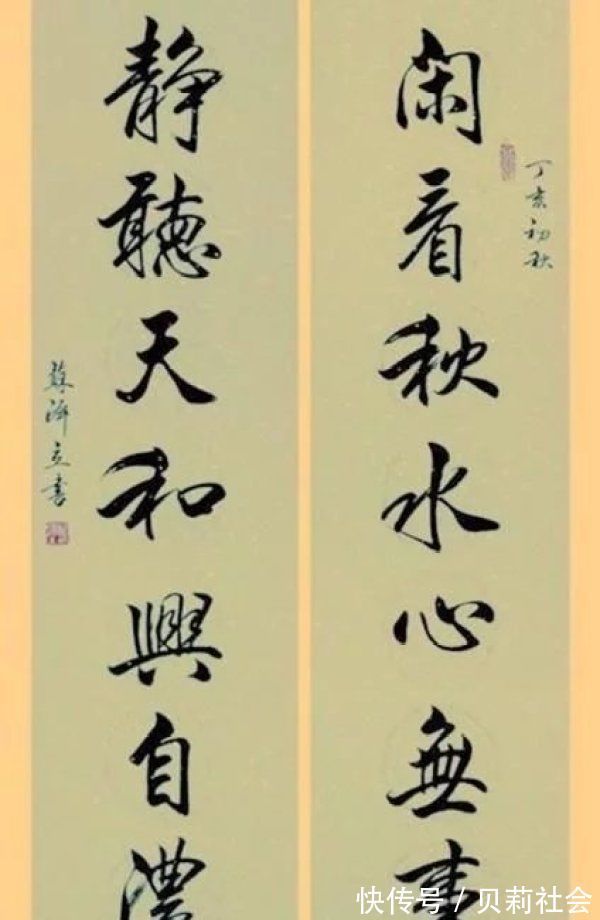 丁亥初秋
閑看秋水心無事
静聽天和興自濃
蘇澤立書
快传号/贝莉社会